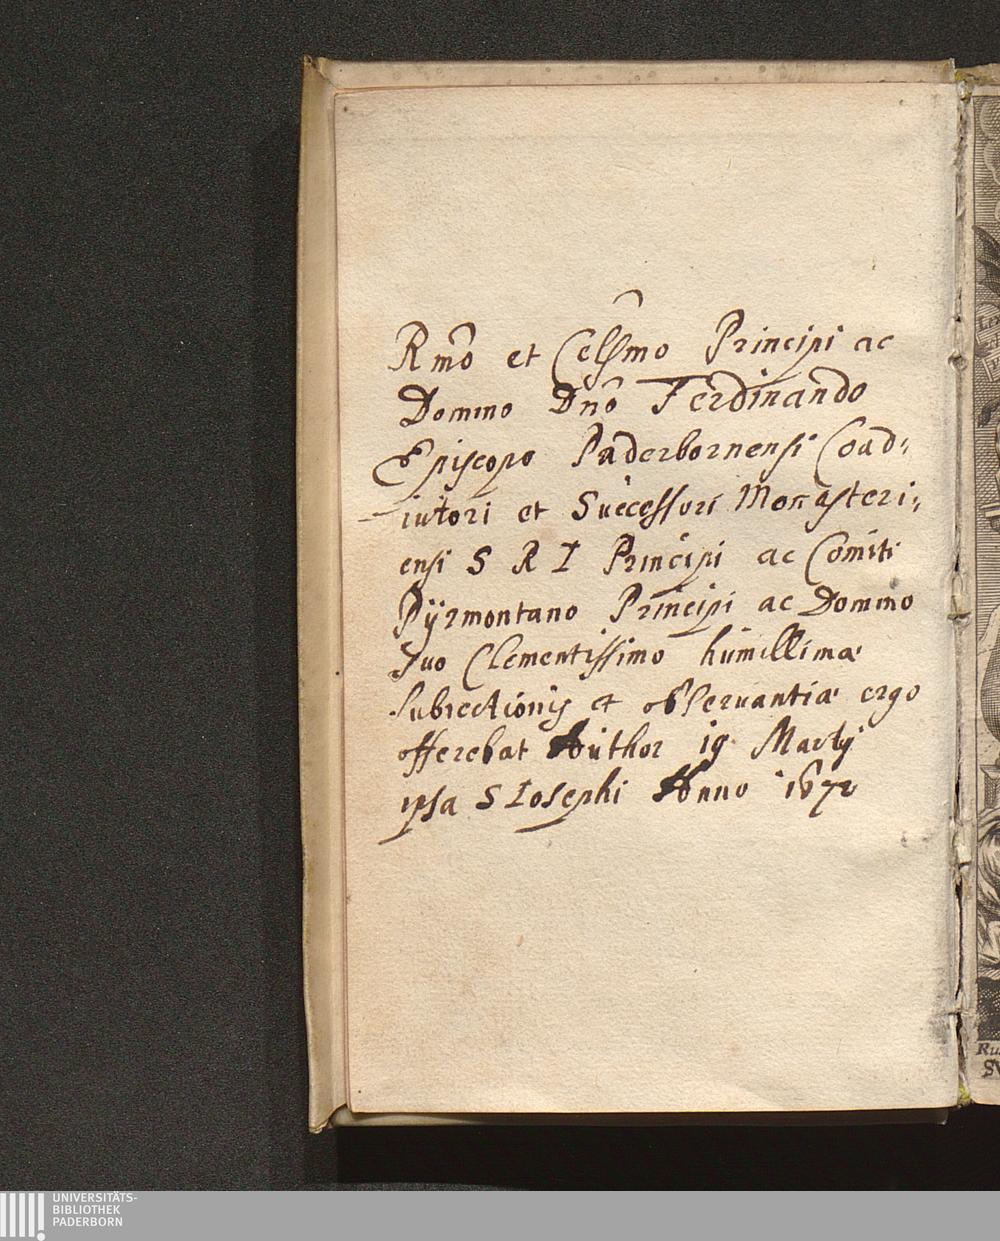 Rmô et Celsmô Principi ac
Domino Dnô Ferdinando
Episcopo Paderbornensi Coad:
iutori et Successori Monasteri:
ensi S R I Principi ac Comiti
Pÿrmontano Principi ac Domino
suo Clementissimo humillimæ
subiectionis et obseruantiæ ergo
offerebat Author 19 Martij
ipsa S Iosephi Anno 1672
Ru
SV
UNIVERSITÄTS-
BIBLIOTHEK
PADERBORN